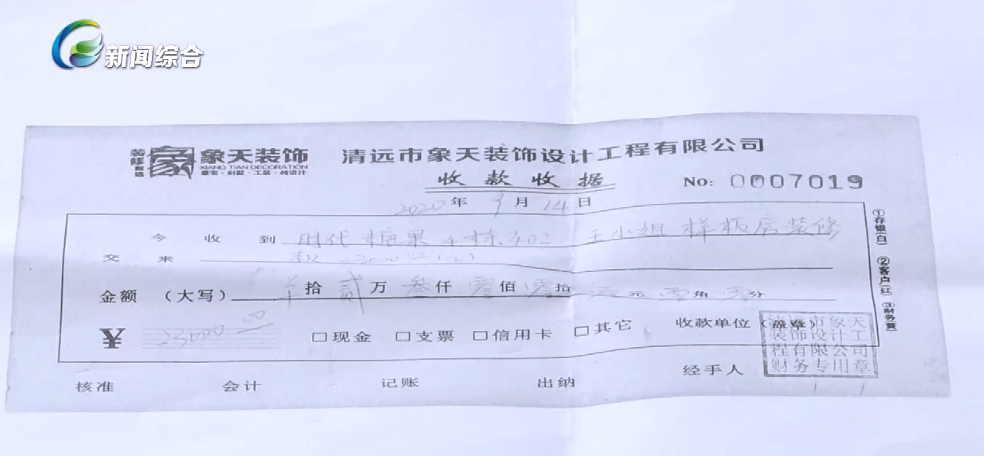 新闻综合
装修首选 象天装饰 清远市象天装饰设计工程有限公司
XIANG TIAN DECORATION
豪宅·别墅·工装·纯设计
收款收据 No: 0007019
2020年9月14日
今收到 时代糖果4栋402 王小姐样板房装修
交来 款23000
金额 (大写) 拾贰万叁仟零佰零拾零元零角零分
¥ 23000.00 □现金 □支票 □信用卡 □其它 收款单位(盖章)
清远市象天
装饰设计工
程有限公司
财务专用章
经手人
核准 会计 记账 出纳
①存银(白) ②客户(红) ③财务(黄)